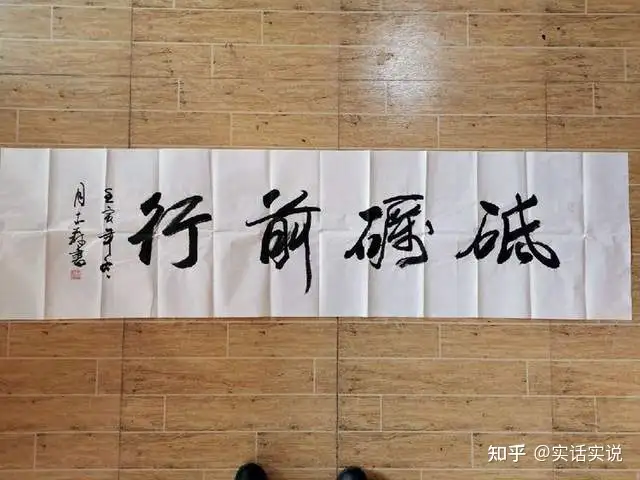 砥礪前行
壬寅年冬
月士书
知乎 @实话实说